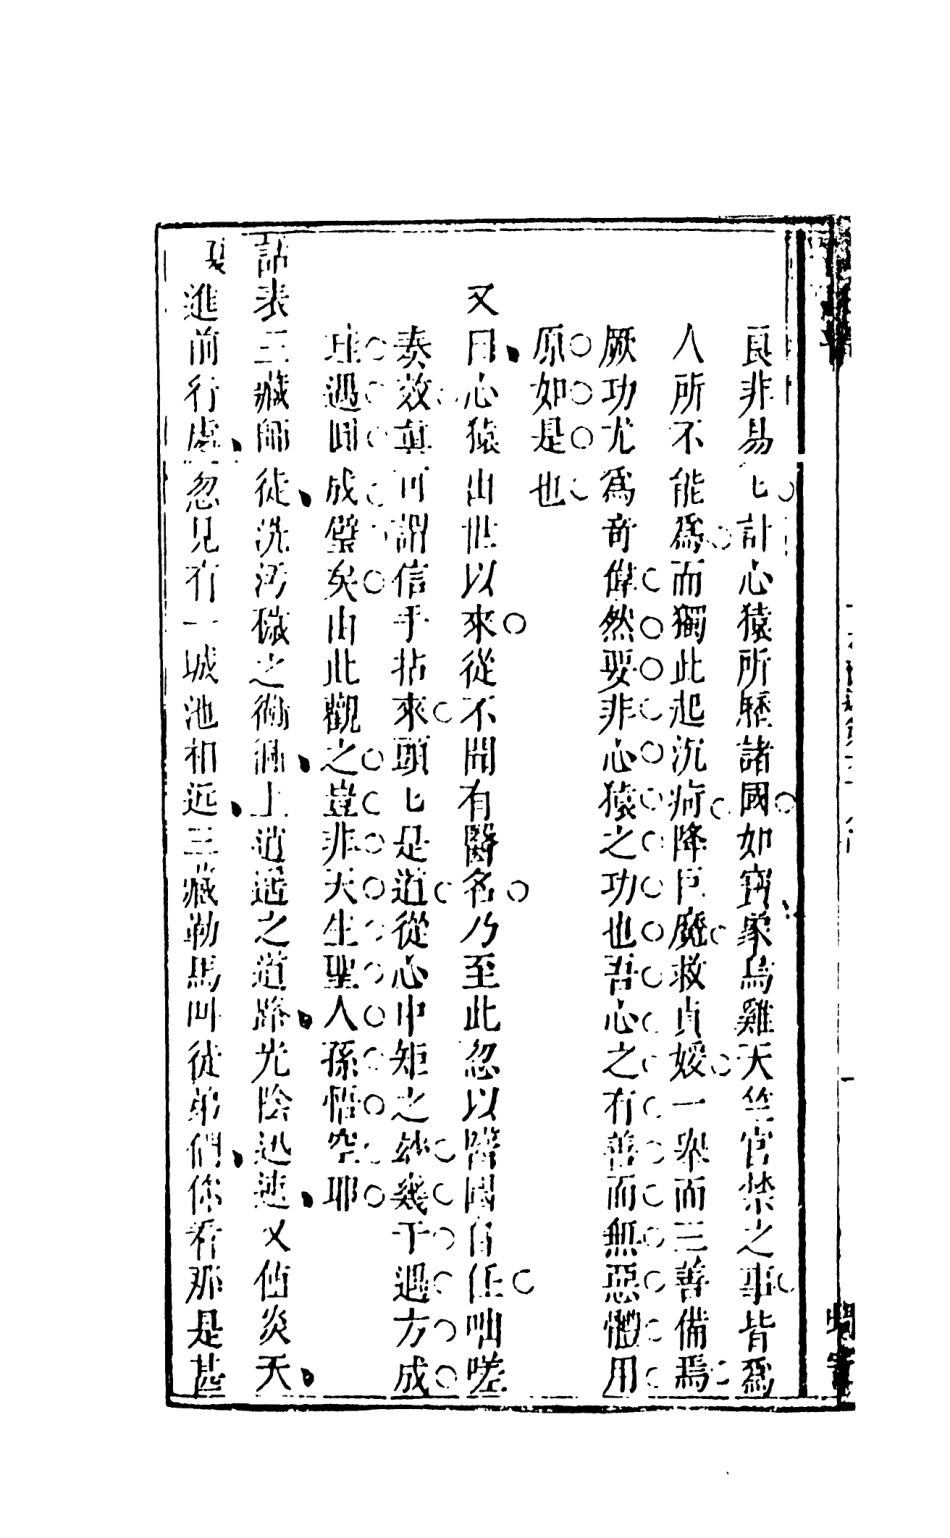 良非易七計心猿所歷諸國如寶象烏雞天竺官禁之事皆爲
人所不能爲而獨此起沉痾降巨魔救貞媛一舉而三善備焉
厥功尤爲奇偉然要非心猿之功也吾心之有善而無惡體用
原如是也
又曰心猿出世以來從不聞有醫名乃至此忽以醫國自任咄嗟
奏效眞可謂信手拈來頭七是道從心中矩之玅幾于遇方成
珪遇圓成璧矣由此觀之豈非天生聖人孫悟空耶
話表三藏師徒洗汚穢之衚衕上逍遙之道路光陰迅速又值炎天
進前行處忽見有一城池相近三藏勒馬叫徒弟們你看那是甚